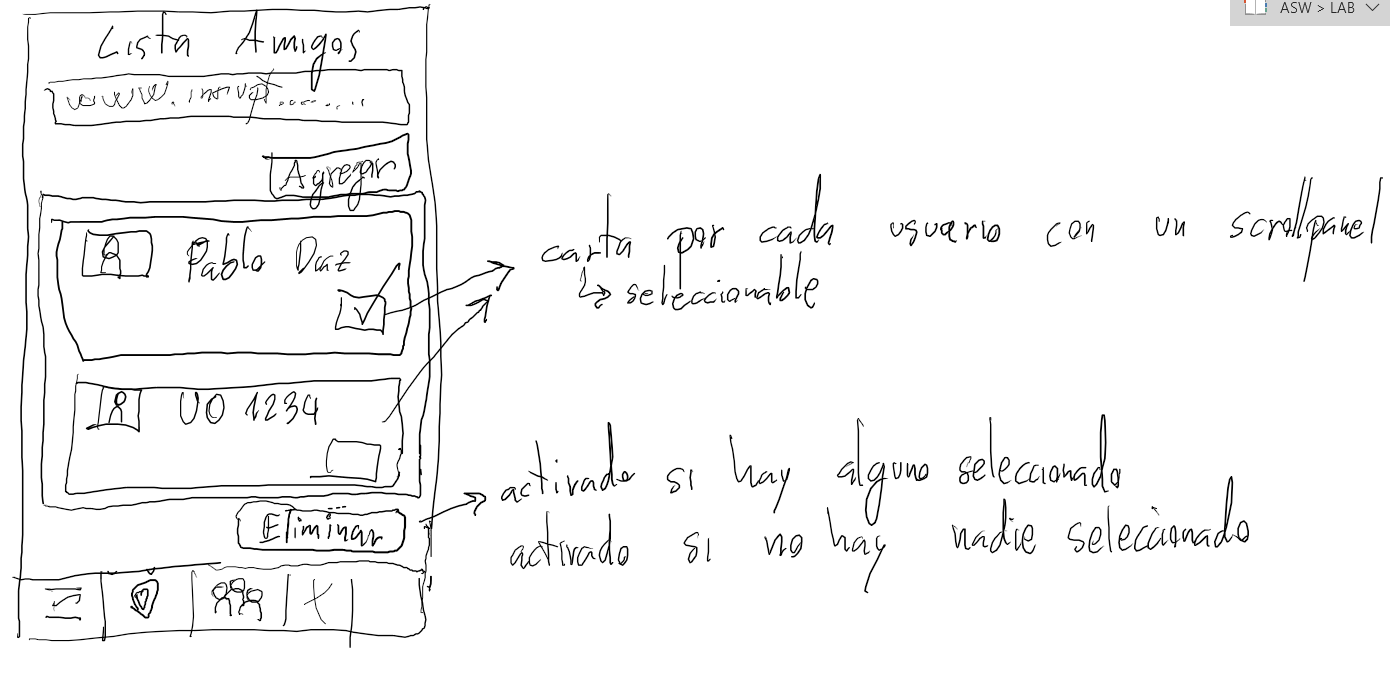 ASW > LAB
Lista Amigos
www.inrupt.........
Agregar
Pablo Diaz
UO 1234
Eliminar
carta por cada usuario con un scrollpanel
↳ seleccionable
activado si hay alguno seleccionado
activado si no hay nadie seleccionado